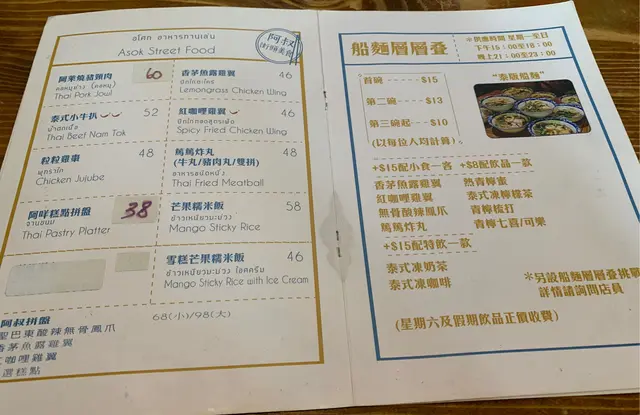 อโศก อาหารทานเล่น
Asok Street Food
阿叔
街頭美食
阿萊燒豬頸肉
60
คอหมูย่าง (คอหมู)
Thai Pork Jowl
香茅魚露雞翼 46
ปีกไก่ตะไคร้
Lemongrass Chicken Wing
泰式小牛扒 52
น้ำตกเนื้อ
Thai Beef Nam Tok
紅咖哩雞翼 46
ปีกไก่ทอดสูตรเผ็ด
Spicy Fried Chicken Wing
粒粒雞棗 48
พุทราไก่
Chicken Jujube
篤篤炸丸 48
(牛丸/豬肉丸/雙拼)
อาหารชนิดหนึ่ง
Thai Fried Meatball
阿咩糕點拼盤
38
จานขนม
Thai Pastry Platter
芒果糯米飯 58
ข้าวเหนียวมะม่วง
Mango Sticky Rice
雪糕芒果糯米飯 46
ข้าวเหนียวมะม่วง ไอศครีม
Mango Sticky Rice with Ice Cream
阿叔拼盤 68(小)/98(大)
聖巴東酸辣無骨鳳爪
香茅魚露雞翼
紅咖哩雞翼
選糕點
船麵層層叠
*供應時間 星期一至日
下午15:00至18:00
晚上21:00至23:00
首碗 $15
第二碗 $13
第三碗起 $10
(以每位人均計算)
"泰版船麵"
+$15配小食一客 +$8配飲品一款
香茅魚露雞翼 熱青檸蜜
紅咖哩雞翼 泰式凍檸檬茶
無骨酸辣鳳爪 青檸梳打
篤篤炸丸 青檸七喜/可樂
+$15配特飲一款
泰式凍奶茶
泰式凍咖啡
*另設船麵層層叠挑戰
詳情請詢問店員
(星期六及假期飲品正價收費)